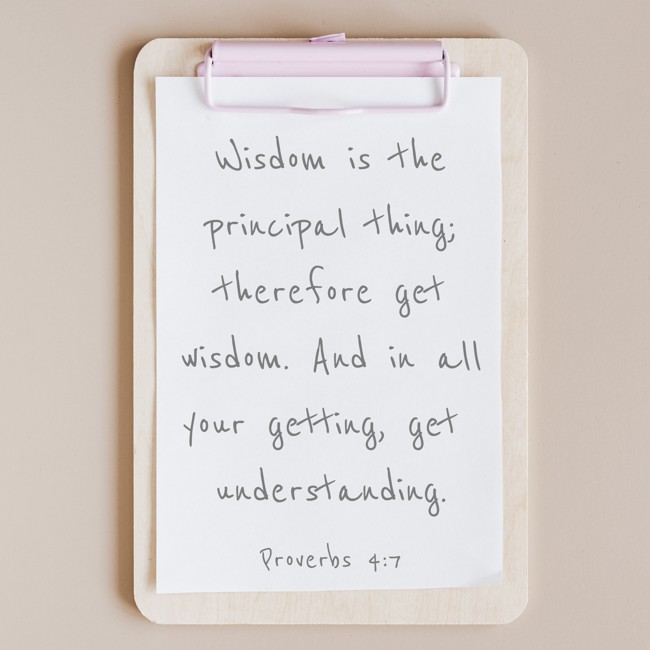 Wisdom is the
principal thing;
therefore get
wisdom. And in all
your getting, get
understanding.
Proverbs 4:7